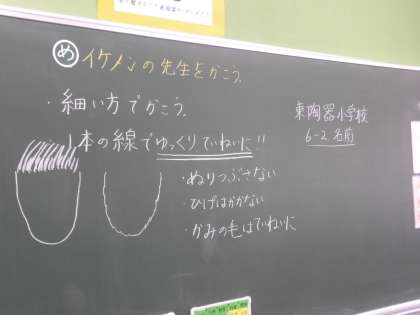 め イケメンの先生をかこう。
・細い方でかこう。
1本の線でゆっくりていねいに!!
・ぬりつぶさない
・ひげはかかない
・かみの毛はていねいに
東陶器小学校
6-2 名前